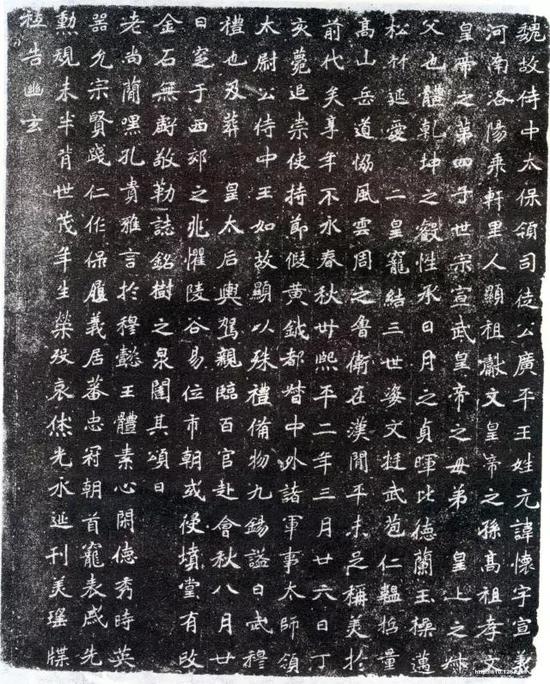 魏故侍中太保領司徒公廣平王姓元諱懷字宣義
河南洛陽乘軒里人顯祖獻文皇帝之孫髙祖孝文
皇帝之第四子世宗宣武皇帝之母弟　皇上之叔
父也體乾坤之叡性承日月之貞暉比德蘭玉操邁
松竹延愛二皇寵結三世姿文挺武苞仁韞哲量
髙山岳道協風雲周之魯衛在漢閒平未足稱美於
前代矣享年不永春秋卅熙平二年三月廿六日丁
亥薨追崇使持節假黃鉞都督中外諸軍事太師領
太尉公侍中王如故顯以殊禮備物九錫謚曰武穆
禮也及葬　皇太后輿駕親臨百官赴會秋八月廿
日窆于西郊之兆懼陵谷易位市朝或侵墳堂有改
金石無虧敬勒誌銘樹之泉闥其頌曰
老尚簡嘿孔貴雅言於穆懿王體素心閑德秀時英
器允宗賢踐仁作保履義居蕃忠冠朝首寵表戚先
勲䂓未半背世茂年生榮歿哀休光永延刊美瑤牒
祗告幽玄